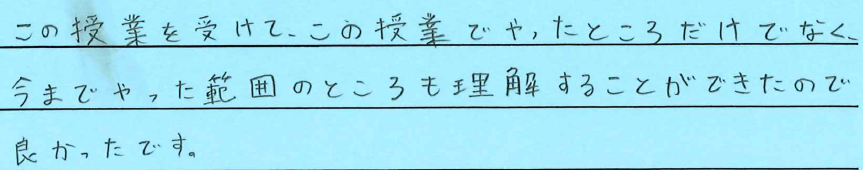 この授業を受けて、この授業でやったところだけでなく、
今までやった範囲のところも理解することができたので
良かったです。